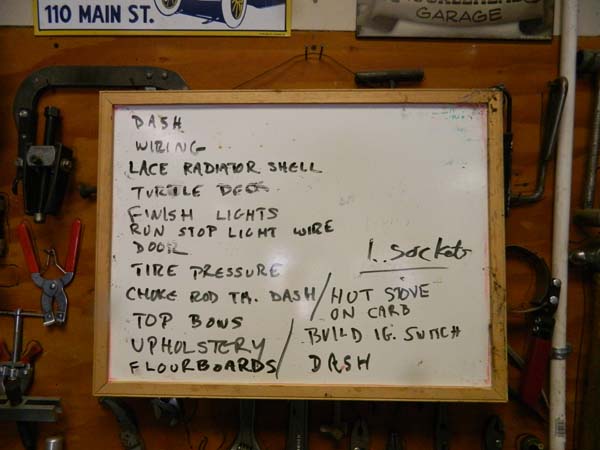 110 MAIN ST.
GARAGE
DASH
WIRING
LACE RADIATOR SHELL
TURTLE DECK
FINISH LIGHTS
RUN STOP LIGHT WIRE
DOOR
1. Sockets
TIRE PRESSURE
CHOKE ROD TM. DASH / HOT STOVE
ON CARB
TOP BOWS
UPHOLSTERY / BUILD IG. SWITCH
FLOURBOARDS / DASH